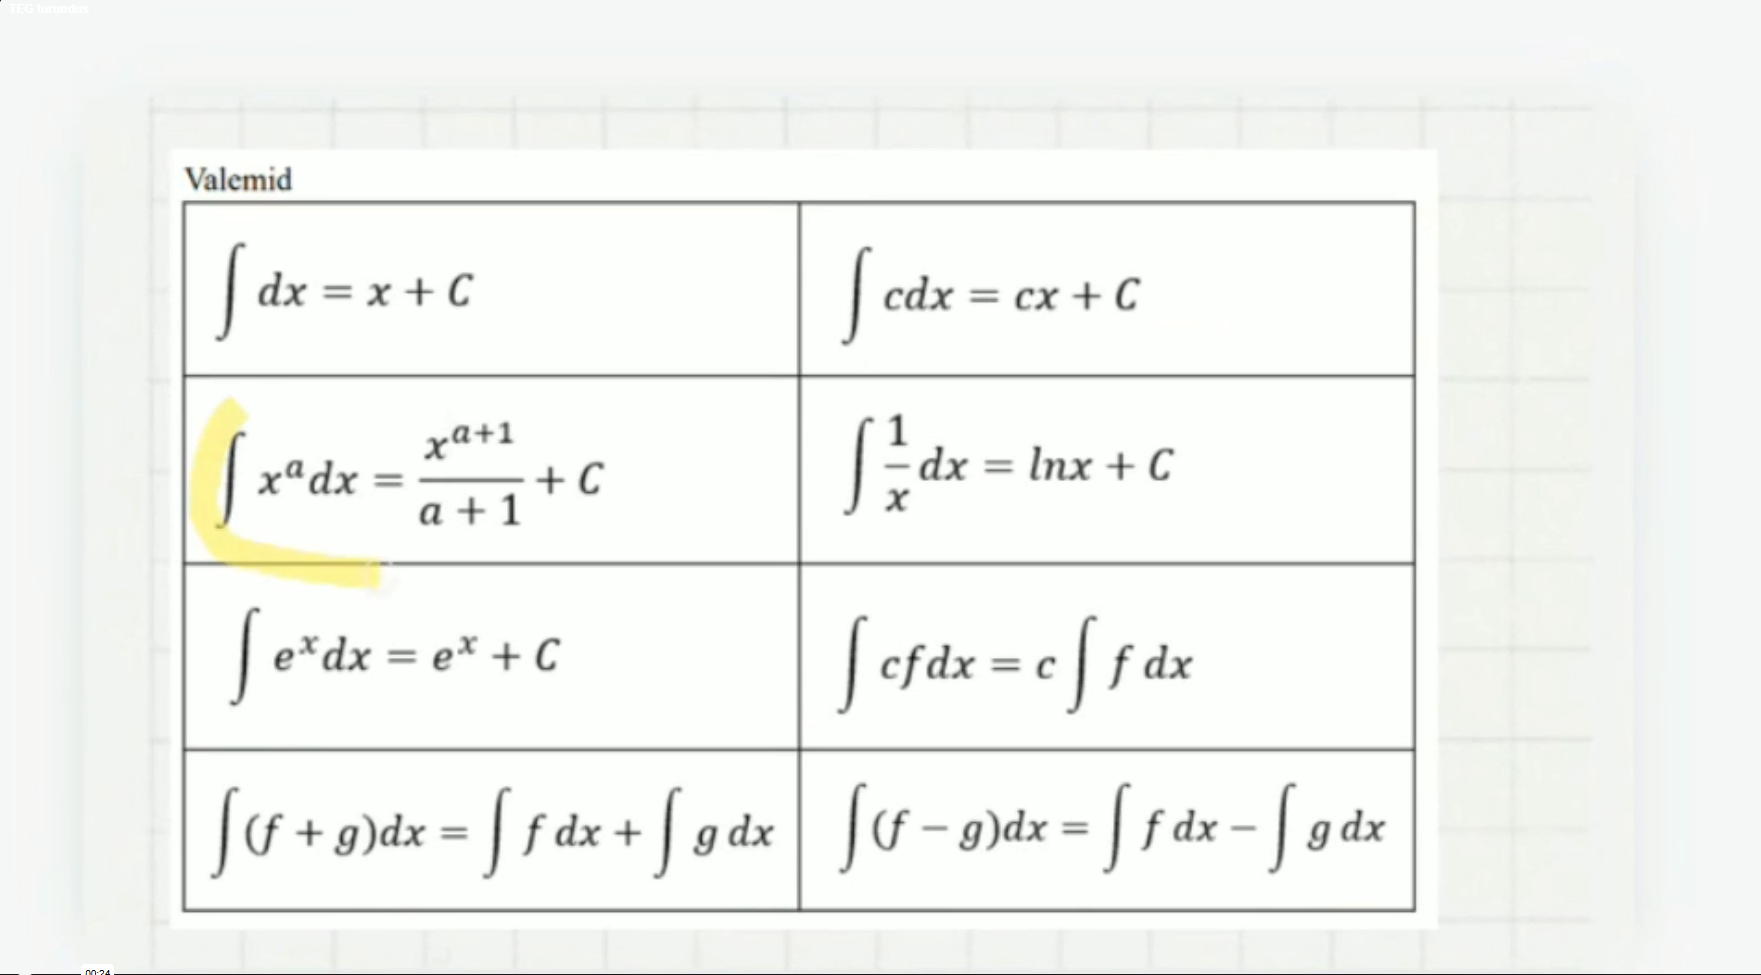 TEG turundus
Valemid
∫ dx = x + C
∫ cdx = cx + C
∫ xᵃdx = xᵃ⁺¹/(a + 1) + C
∫ 1/x dx = lnx + C
∫ eˣdx = eˣ + C
∫ cfdx = c ∫ f dx
∫(f + g)dx = ∫ f dx + ∫ g dx
∫(f − g)dx = ∫ f dx − ∫ g dx
00:24